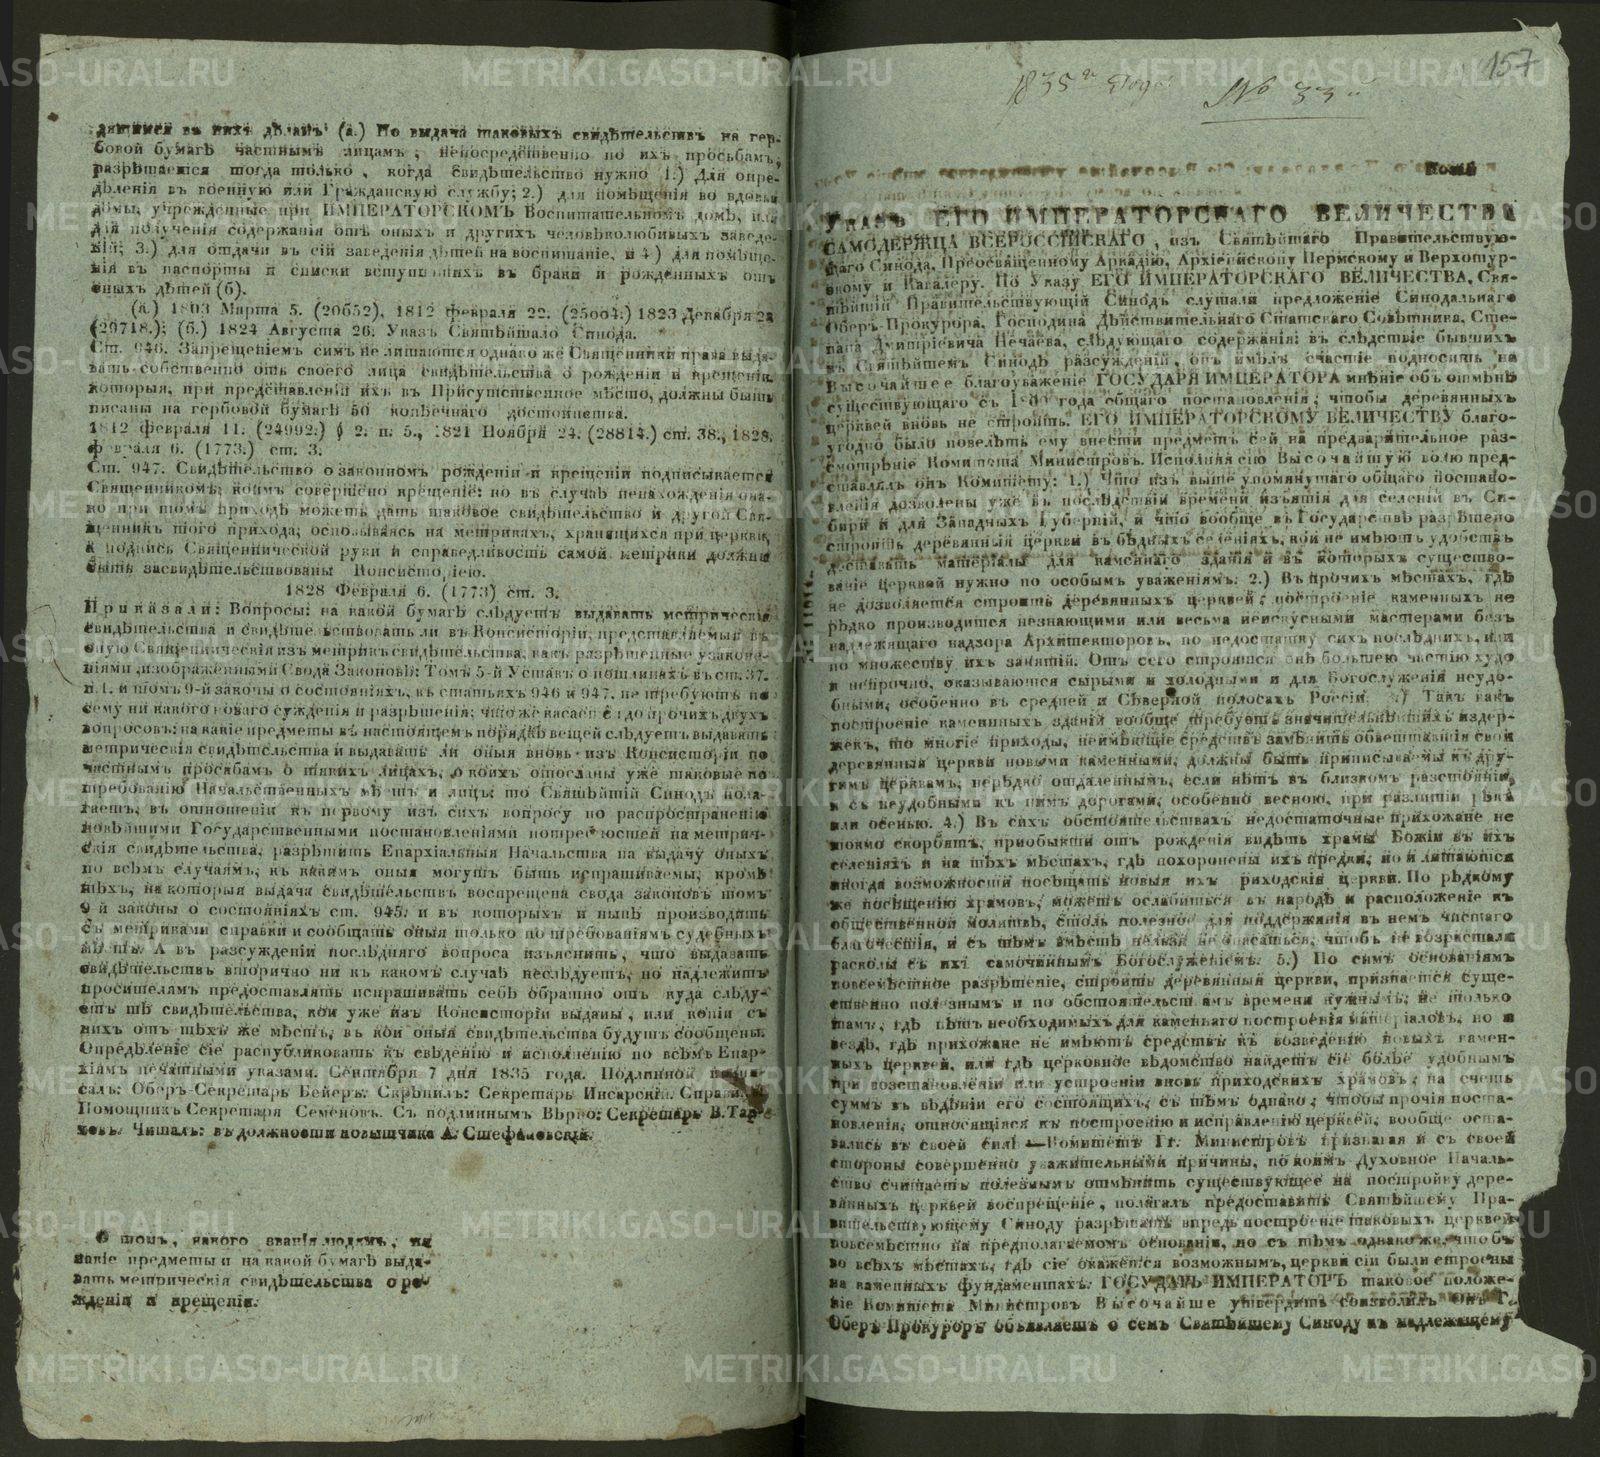 дящимся въ нихъ дѣламъ (а.) Но выдача таковыхъ свидѣтельствъ на гер-
бовой бумагѣ частнымъ лицамъ, непосредственно по ихъ просьбамъ,
разрѣшается тогда только, когда свидѣтельство нужно 1.) Для опре-
дѣленія въ военную или Гражданскую службу; 2.) для помѣщенія во вдовьи
домы, учрежденные при ИМПЕРАТОРСКОМЪ Воспитательномъ домѣ, или
для полученія содержанія отъ оныхъ и другихъ человѣколюбивыхъ заведе-
ній; 3.) для отдачи въ сій заведенія дѣтей на воспитаніе, и 4) для помѣще-
нія въ паспорты и списки вступившихъ въ браки и рожденныхъ отъ
оныхъ дѣтей (б).
(а.) 1803 Марта 5. (20652), 1812 февраля 22. (25004.) 1823 Декабря 24
(29718.); (б.) 1824 Августа 26. Указъ Святѣйшаго Синода.
Ст. 946. Запрещеніемъ симъ не лишаются однако же Священники права выда-
вать собственно отъ своего лица свидѣтельства о рожденіи и крещеніи,
которыя, при представленіи ихъ въ Присутственное мѣсто, должны быть
писаны на гербовой бумагѣ 50 копѣечнаго достоинства.
1812 февраля 11. (24992.) § 2. п. 5., 1821 Ноября 24. (28814.) ст. 38., 1828.
февраля 6. (1773.) ст. 3.
Ст. 947. Свидѣтельство о законномъ рожденіи и крещеніи подписывается
Священникомъ, коимъ совершено крещеніе: но въ случаѣ ненахожденія она-
го при томъ приходѣ можетъ дать таковое свидѣтельство и другой Свя-
щенникъ того прихода; основываясь на метрикахъ, хранящихся при церкви,
а подпись Священнической руки и справедливость самой метрики должны
быть засвидѣтельствованы Консисторіею.
1828 Февраля 6. (1773) ст. 3.
Приказали: Вопросы: на какой бумагѣ слѣдуетъ выдавать метрическія
свидѣтельства и свидѣтельствовать ли въ Консисторіи, представляемыя въ
оную Священническія изъ метрикъ свидѣтельства, какъ разрѣшенные узаконе-
ніями, изображенными Свода Законовъ: Томъ 5-й Уставъ о пошлинахъ въ ст. 37.
п. 1. и томъ 9-й законы о состояніяхъ, въ статьяхъ 946 и 947. не требуютъ по
сему ни какого новаго сужденія и разрѣшенія; что же касается до прочихъ двухъ
вопросовъ: на какіе предметы въ настоящемъ порядкѣ вещей слѣдуетъ выдавать
метрическія свидѣтельства и выдавать ли оныя вновь изъ Консисторіи по
частнымъ просьбамъ о такихъ лицахъ, о коихъ отосланы уже таковые по
требованію Начальственныхъ мѣстъ и лицъ: то Святѣйшій Синодъ пола-
гаетъ, въ отношеніи къ первому изъ сихъ вопросу по распространенію
новѣйшими Государственными постановленіями потребностей на метриче-
скія свидѣтельства, разрѣшить Епархіальныя Начальства на выдачу оныхъ
по всѣмъ случаямъ, къ какимъ оныя могутъ быть испрашиваемы; кромѣ
тѣхъ, на которыя выдача свидѣтельствъ воспрещена свода законовъ томъ
9 й законы о состояніяхъ ст. 945. и въ которыхъ и нынѣ производить
съ метриками справки и сообщать оныя только по требованіямъ судебныхъ
мѣстъ. А въ разсужденіи послѣдняго вопроса изъяснить, что выдавать
свидѣтельствъ вторично ни къ какомъ случаѣ неслѣдуетъ, но надлежитъ
просителямъ предоставлять испрашивать себѣ обратно отъ куда слѣду-
етъ тѣ свидѣтельства, кои уже изъ Консисторіи выданы, или копіи съ
нихъ отъ тѣхъ же мѣстъ, въ кои оныя свидѣтельства будутъ сообщены.
Опредѣленіе сіе распубликовать къ свѣденію и исполненію по всѣмъ Епар-
хіямъ печатными указами. Сентября 7 дня 1835 года. Подлинной подпи-
салъ: Оберъ-Секретарь Бейеръ. Скрѣпилъ: Секретарь Инсарскій. Справилъ
Помощникъ Секретаря Семеновъ. Съ подлиннымъ Вѣрно: Секретарь В.
Читалъ: въ должности повытчика А. Стефановскій.
О томъ, какого званія людямъ, на
какіе предметы и на какой бумагѣ выда-
вать метрическія свидѣтельства о ро-
жденіи и крещеніи.
157
1835 го Года
№ 33 й
Копія
Указъ ЕГО ИМПЕРАТОРСКАГО ВЕЛИЧЕСТВА
САМОДЕРЖЦА ВСЕРОССІЙСКАГО, изъ Святѣйшаго Правительствую-
щаго Синода, Преосвященному Аркадію, Архіепископу Пермскому и Верхотур-
скому и Кавалеру. По Указу ЕГО ИМПЕРАТОРСКАГО ВЕЛИЧЕСТВА, Свя-
тѣйшій Правительствующій Синодъ слушали предложеніе Синодальнаго
Оберъ-Прокурора, Господина Дѣйствительнаго Статскаго Совѣтника, Сте-
пана Дмитріевича Нечаева, слѣдующаго содержанія: въ слѣдствіе бывшихъ
въ Святѣйшемъ Синодѣ разсужденій, онъ имѣлъ счастіе подносить на
Высочайшее благоуваженіе ГОСУДАРЯ ИМПЕРАТОРА мнѣніе объ отмѣнѣ
существующаго съ года общаго постановленія, чтобы деревянныхъ
церквей вновь не строить. ЕГО ИМПЕРАТОРСКОМУ ВЕЛИЧЕСТВУ благо-
угодно было повелѣть ему внести предметъ сей на предварительное раз-
смотрѣніе Комитета Министровъ. Исполняя сію Высочайшую волю пред-
ставлялъ онъ Комитету: 1.) Что изъ выше упомянутаго общаго постано-
вленія дозволены уже въ послѣдствіи времени изъятія для селеній въ Си-
бири и для Западныхъ Губерній, и что вообще въ Государствѣ разрѣшено
строить деревянныя церкви въ бѣдныхъ селеніяхъ, кои не имѣютъ удобствъ
доставать матеріалы для каменнаго зданія и въ которыхъ существо-
ваніе Церквей нужно по особымъ уваженіямъ: 2.) Въ прочихъ мѣстахъ, гдѣ
не дозволяется строить деревянныхъ церквей, построеніе каменныхъ не
рѣдко производится незнающими или весьма неискусными мастерами безъ
надлежащаго надзора Архитекторовъ, по недостатку сихъ послѣднихъ, или
по множеству ихъ занятій. Отъ сего строятся онѣ большею частію худо
и непрочно, оказываются сырыми и холодными и для Богослуженія неудо-
бными, особенно въ средней и Сѣверной полосахъ Россіи. 3) Такъ какъ
построеніе каменныхъ зданій вообще требуетъ значительнѣйшихъ издер-
жекъ, то многіе приходы, неимѣющіе средствъ замѣнить обветшавшія свои
деревянныя церкви новыми каменными, должны быть приписываемы къ дру-
гимъ церквамъ, нерѣдко отдаленнымъ, если нѣтъ въ близкомъ разстояніи,
и съ неудобными къ нимъ дорогами, особенно весною, при разлитіи рѣкъ
или осенью. 4.) Въ сихъ обстоятельствахъ недостаточные прихожане не
токмо скорбятъ, приобыкши отъ рожденія видѣть храмы Божіи въ ихъ
селеніяхъ и на тѣхъ мѣстахъ, гдѣ похоронены ихъ предки, но и лишаются
иногда возможности посѣщать новыя ихъ приходскія церкви. По рѣдкому
же посѣщенію храмовъ, можетъ ослабиться въ народѣ и расположеніе къ
общественной молитвѣ, столь полезное для поддержанія въ немъ чистаго
благочестія, и съ тѣмъ вмѣстѣ нельзя не опасаться, чтобъ не возрастали
расколы съ ихъ самочиннымъ Богослуженіемъ. 5.) По симъ основаніямъ
повсемѣстное разрѣшеніе, строить деревянныя церкви, признается суще-
ственно полезнымъ и по обстоятельствамъ времени нужнымъ; не только
тамъ, гдѣ нѣтъ необходимыхъ для каменнаго построенія матеріаловъ, но и
вездѣ, гдѣ прихожане не имѣютъ средствъ къ возведенію новыхъ камен-
ныхъ церквей, или гдѣ церковное вѣдомство найдетъ сіе болѣе удобнымъ
при возстановленіи или устроеніи вновь приходскихъ храмовъ, на счетъ
суммъ въ вѣдѣніи его состоящихъ, съ тѣмъ однако, чтобы прочія поста-
новленія, относящіяся къ построенію и исправленію церквей, вообще оста-
вались въ своей силѣ — Комитетъ Гг. Министровъ признавая и съ своей
стороны совершенно уважительными причины, по коимъ Духовное Началь-
ство считаетъ полезнымъ отмѣнить существующее на постройку дере-
вянныхъ церквей воспрещеніе, полагалъ предоставить Святѣйшему Пра-
вительствующему Синоду разрѣшать впредь построеніе таковыхъ церквей
повсемѣстно на предполагаемомъ основаніи, но съ тѣмъ однако же, чтобъ
во всѣхъ мѣстахъ, гдѣ сіе окажется возможнымъ, церкви сіи были строены
на каменныхъ фундаментахъ. ГОСУДАРЬ ИМПЕРАТОРЪ таковое положе-
ніе Комитета Министровъ Высочайше утвердить соизволилъ Онъ Г.
Оберъ Прокуроръ объявляетъ о семъ Святѣйшему Синоду къ надлежащему